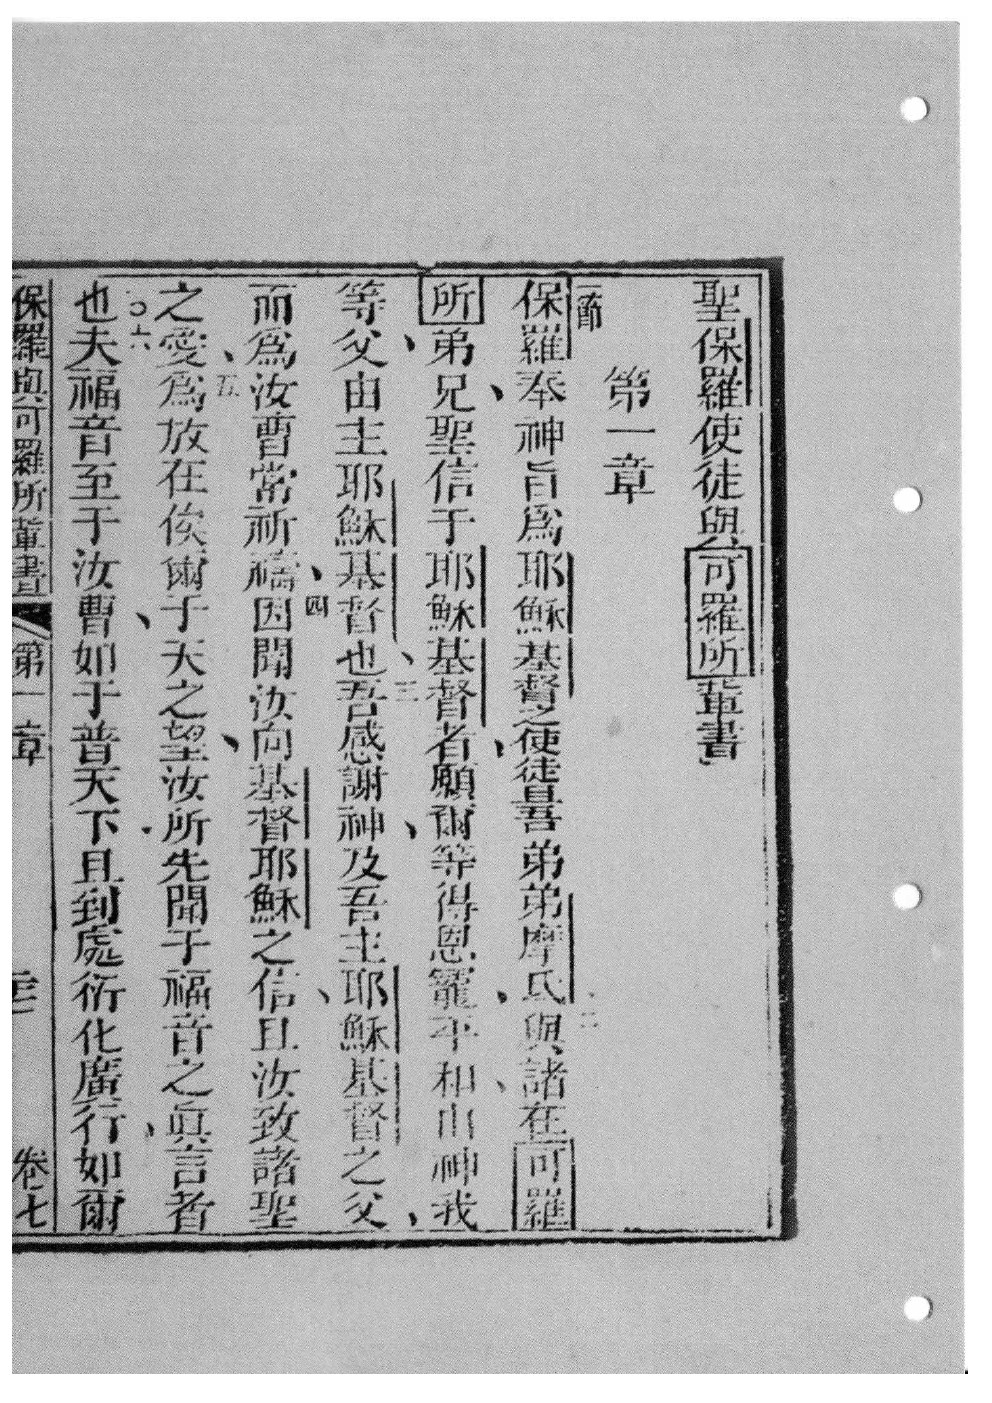 聖保羅使徒與可羅所輩書
第一章
一節保羅奉神旨爲耶穌基督之使徒曁弟弟摩氏、二與諸在可羅
所弟兄、聖信于耶穌基督者、願爾等得恩寵、平和、由神我
等父、由主耶穌基督也、三吾感謝神、及吾主耶穌基督之父、
而爲汝曹常祈禱、四因聞汝向基督耶穌之信、且汝致諸聖
之愛、五爲放在俟爾于天之望、汝所先聞于福音之眞言者
也。六夫福音至于汝曹、如于普天下、且到處衍化廣行、如爾
保羅與可羅所輩書 第一章 卷七